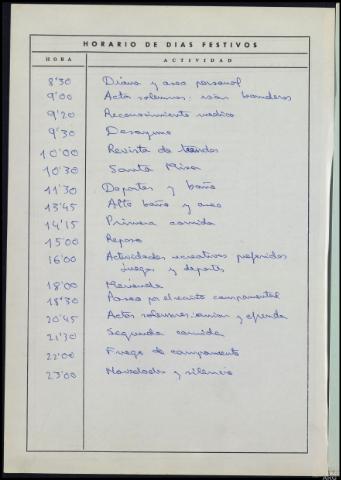 HORARIO DE DIAS FESTIVOS
HORA ACTIVIDAD
8'30 Diana y aseo personal
9'00 Actos solemnes: izar banderas
9'20 Reconocimiento médico
9'30 Desayuno
10'00 Revista de tiendas
10'30 Santa Misa
11'30 Deportes y baño
13'45 Alto baño y aseo
14'15 Primera comida
15'00 Reposo
16'00 Actividades recreativas preferidos
juegos y deportes
18'00 Merienda
18'30 Paseo por el recinto campamental
20'45 Actos solemnes: arriar y ofrenda
21'30 Segunda comida
22'00 Fuego de campamento
23'00 Novedades y silencio